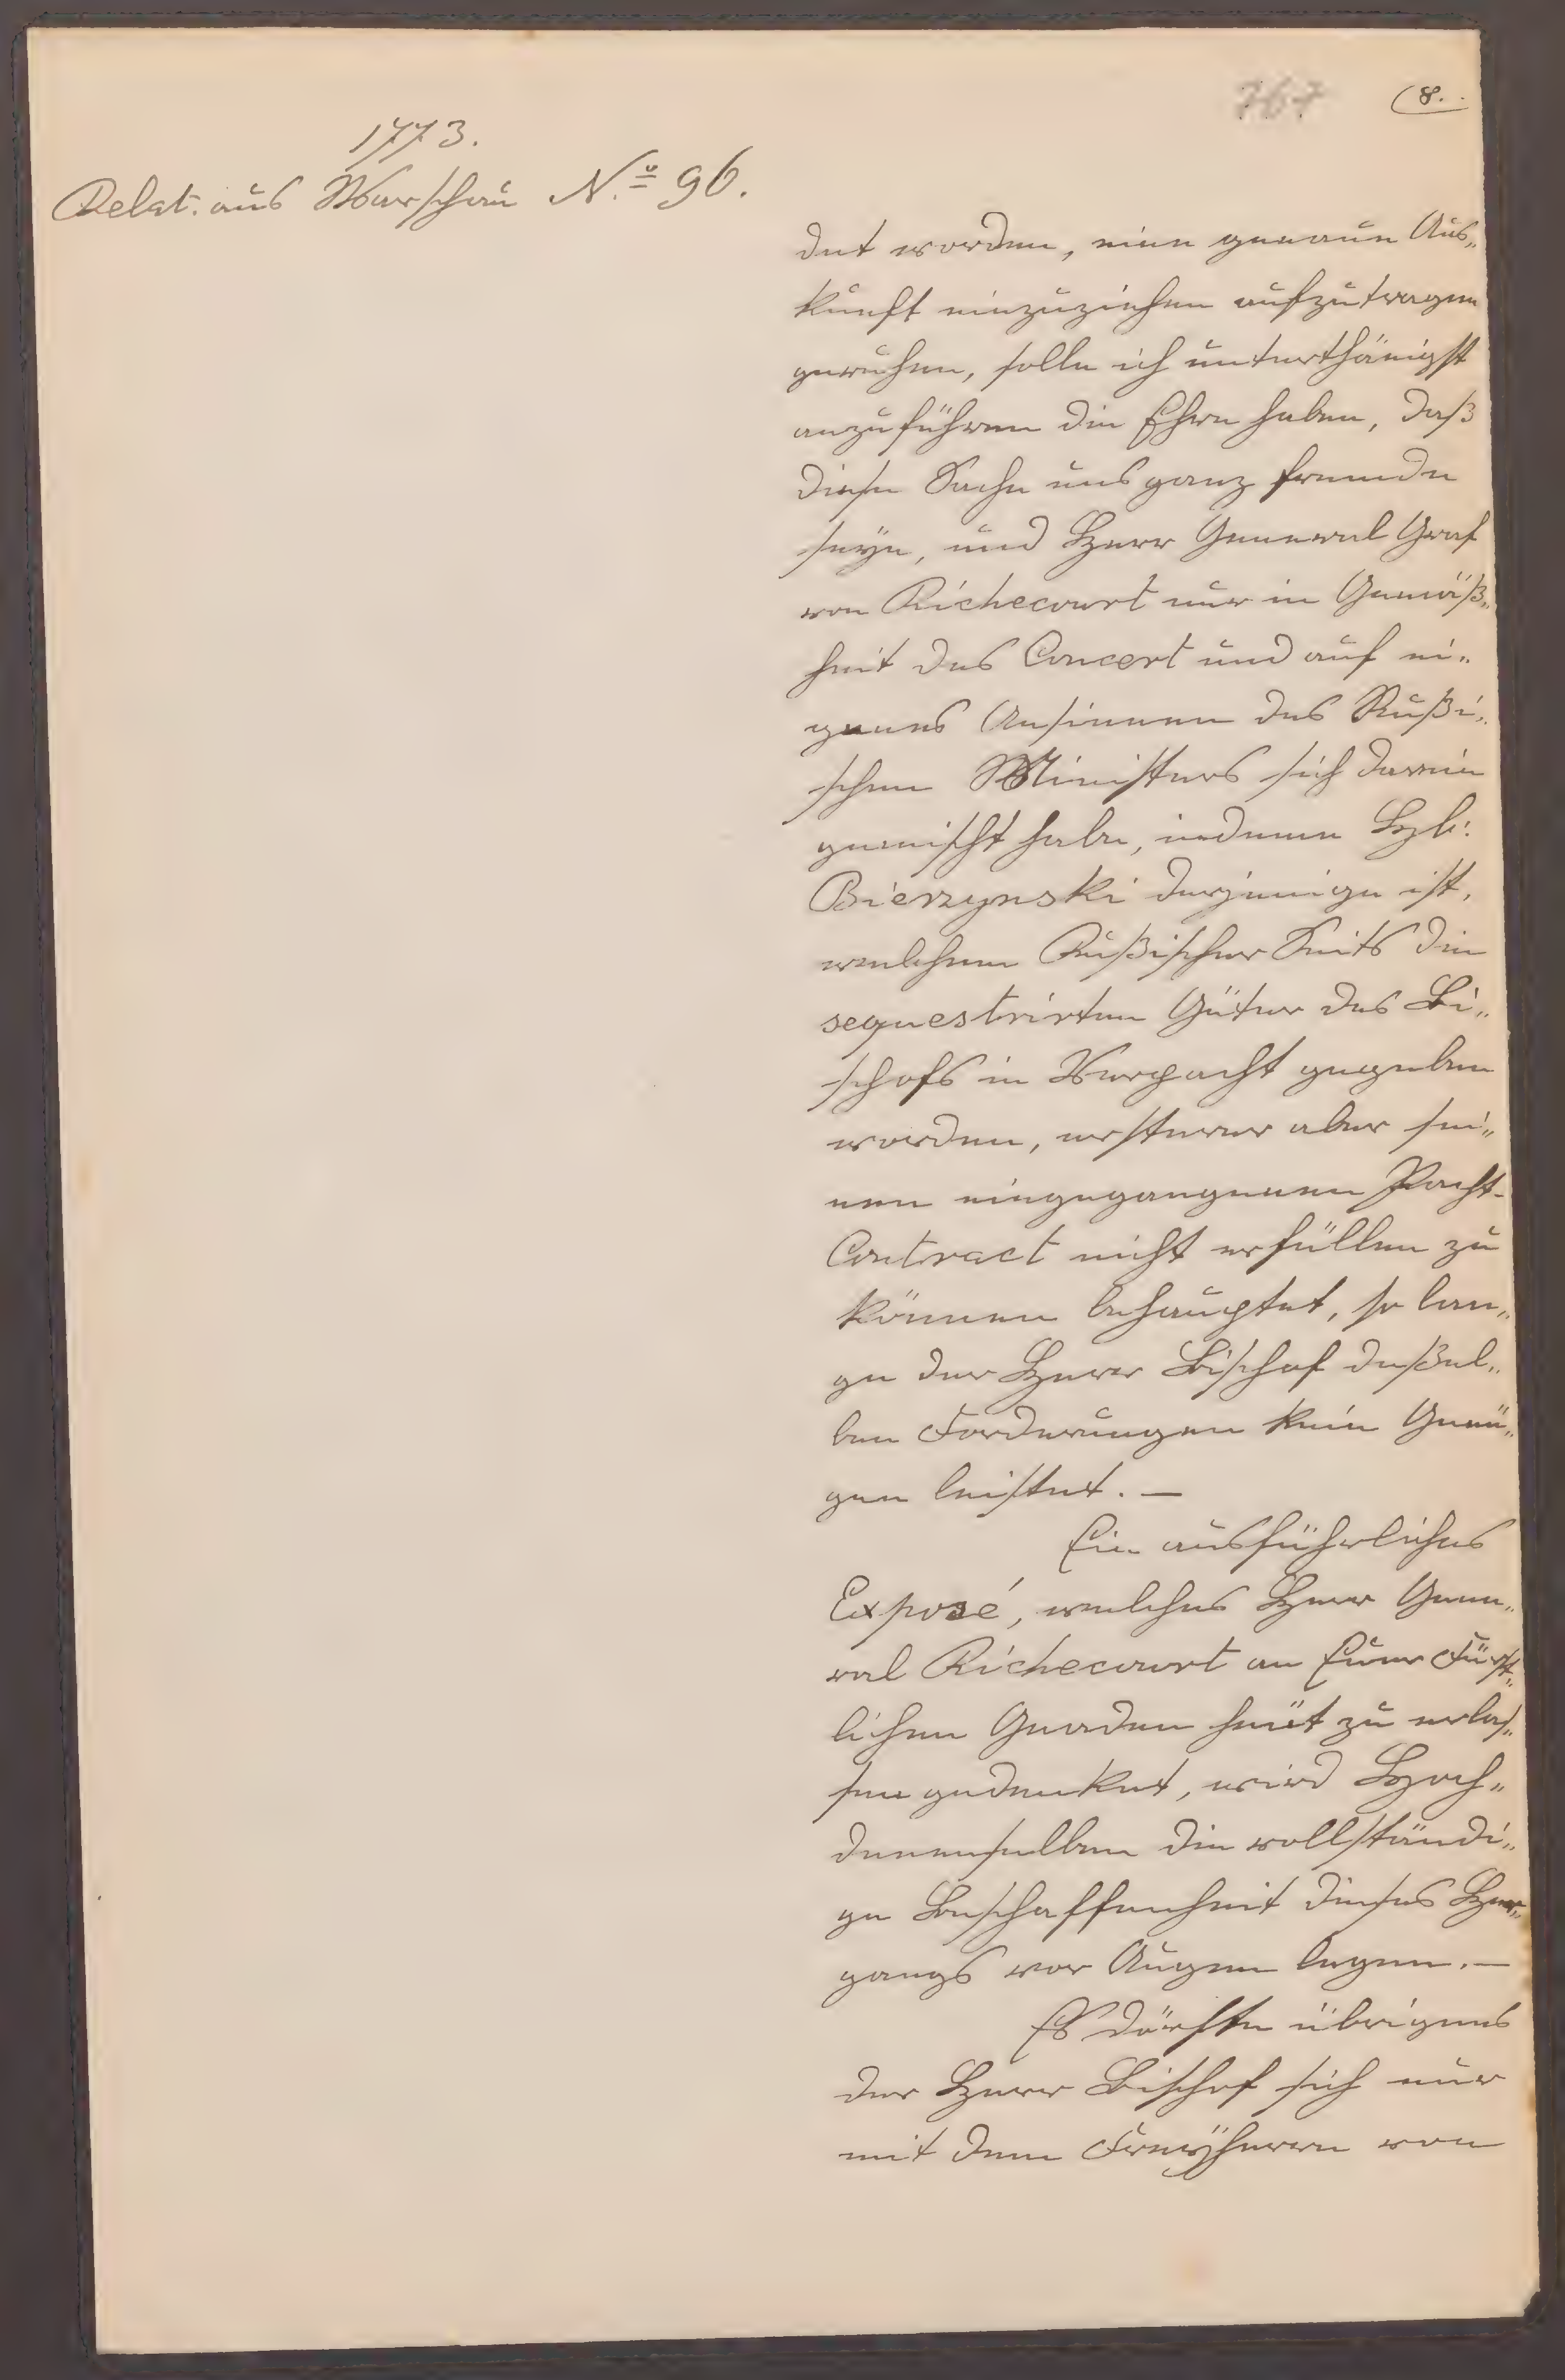 767 (8.
1773.
Relat. aus Warschau N.º 96.
det worden, eine genaue Aus„
kunft einzuziehen aufzutragen
geruhen, solle ich unterthänigst
anzuführen die Ehre haben, daß
diese Sache uns ganz fremde
seÿe, und Herr General Graf
von Richecourt nur in Gemäß„
heit des Concert und auf ei„
genes Ansinnen des Rußi„
schen Ministers sich darein
gemischt habe, indeme H:
Bierzynski derjenige ist,
welchem Rußischer Seits die
sequestrirten Güter des Bi„
schofs in Verpacht gegeben
worden, ersterer aber sei„
nen eingegangenen Pacht-
Contract nicht erfüllen zu
können behauptet, so lan„
ge der Herr Bischof deßel„
ben Forderungen kein Genü„
gen leistet. —
Ein ausführliches
Exposé, welches Herr Gene„
ral Richecourt an Euer Fürst„
lichen Gnaden heüt zu erlas„
sen gedenket, wird Hoch„
denenselben die vollständi„
ge Beschaffenheit dieses Her„
gangs vor Augen legen. —
Es dörfte übrigens
der Herr Bischof sich nur
mit dem Freÿherrn von